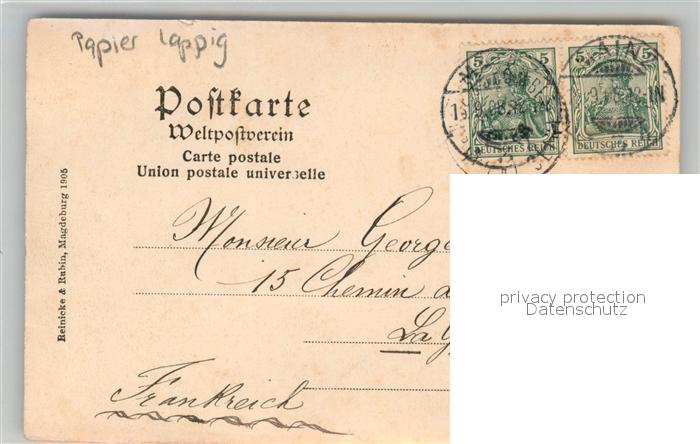 Papier lappig
5 5
5 5
DEUTSCHES REICH
DEUTSCHES REICH
Poſtkarte
Weltpoſtverein
Carte postale
Union postale universelle
Reinicke & Rubin, Magdeburg 1905
Monsieur George
15 Chemin d
La G
Frankreich
privacy protection
Datenschutz